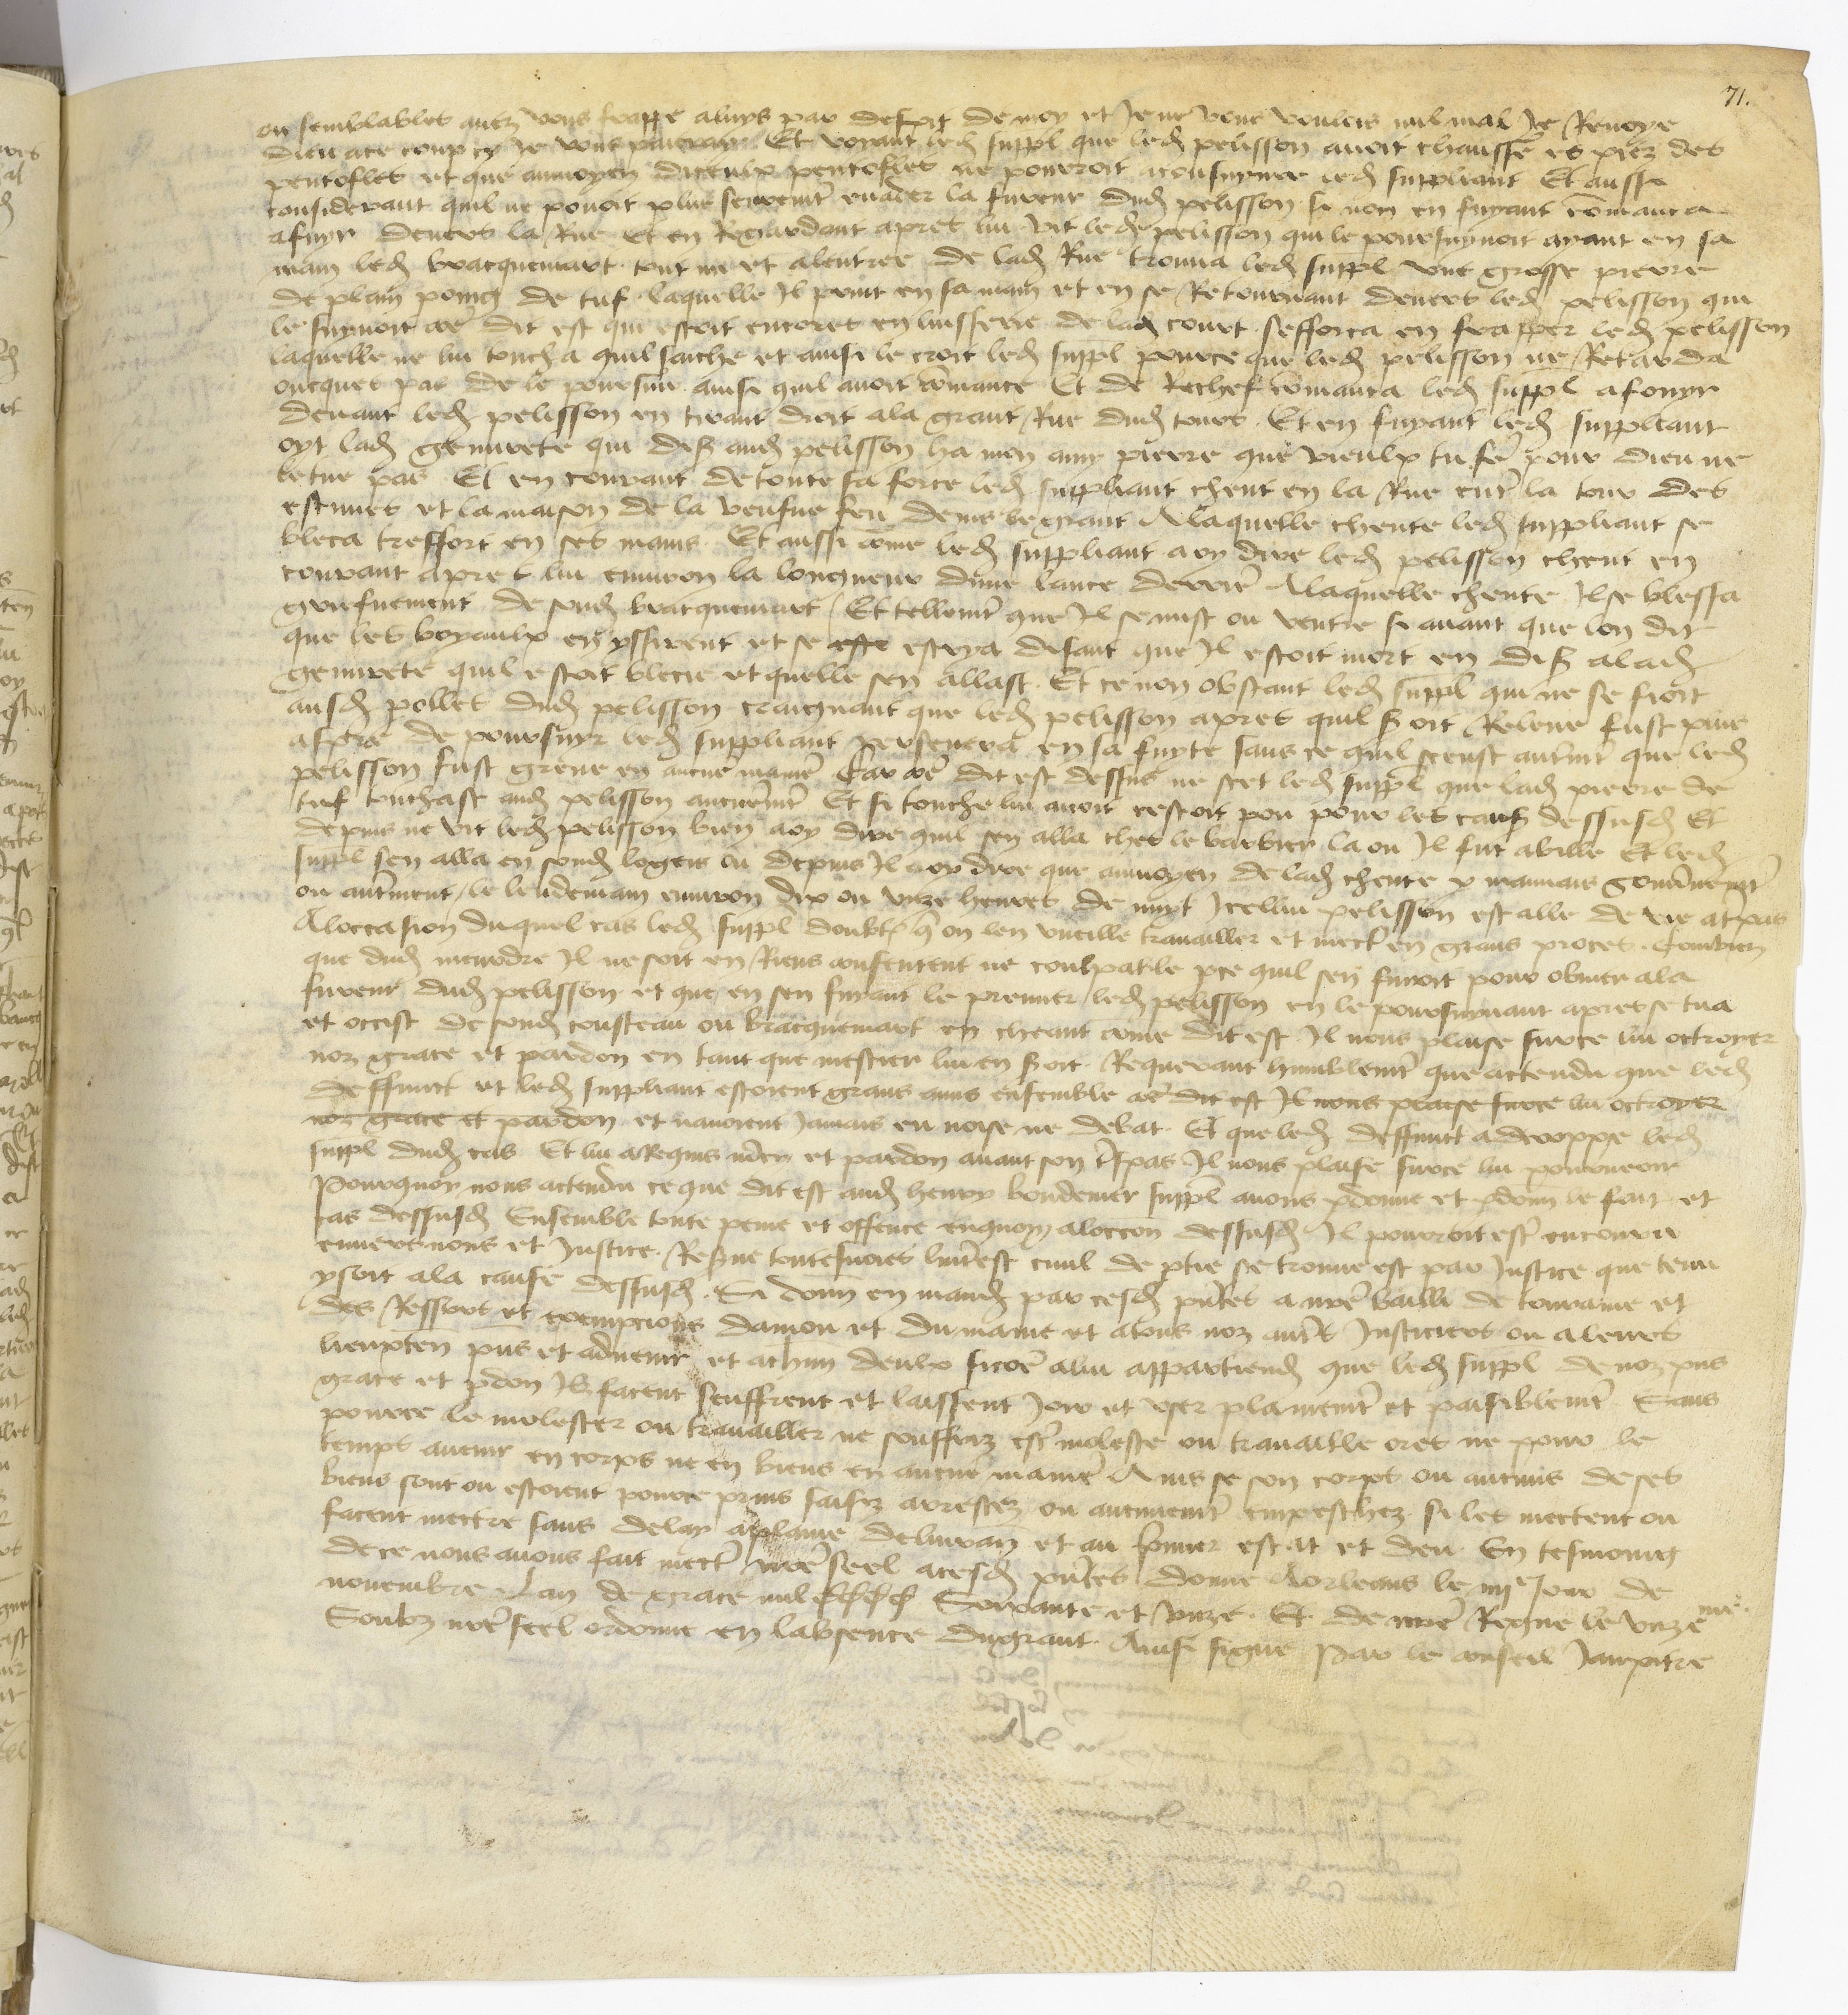 71.
ou semblables avez vous frappe aluys par despit de moy et Je ne vous vouloie nul mal Je Renoye
dieu a ce coup cy Je vous paieray Et voyant led suppl que led pelisson avoit chausse es piez des
pentofles et que au moyen diceulx pentofles ne pourroit aconsuyvre led suppliant Et aussi
considerant quil ne povoit plus seuremt evader la fureur dud pelisson si non en fuyant comanca
afuyr devers la Rue Et en Regardant apres lui vit led pelisson qui le poursuyvoit ayant en sa
main led bracquemart tout nu et alentree de lad Rue trouva led suppl une grosse pierre
de plain poing de tuf laquelle Il print en sa main et en se Retournant devers led pelisson qui
le suyvoit coe dit est qui estoit encores en luisserie de lad court sefforca en frapper led pelisson
laquelle ne lui toucha quil saiche et ainsi le croit led suppl pource que led pelisson ne Retarda
oncques pas de le poursuir ainsi quil avoit comance Et de Rechef comanca led suppl afouyr
devant led pelisson en tirant droit ala grant Rue dud tours Et en fuyant led suppliant
oyt lad gemivete qui dist aud pelisson ha mon amy pierre que vieulx tu fe pour dieu ne
le tue pas Et en courant de toute sa force led suppliant cheut en la Rue entr la tour des
estuves et la maison de la veufve feu denis legrant Alaquelle cheute led suppliant se
bleca tresfort en ses mains Et aussi come led suppliant a oy dire led pelisson cheut en
courant apres lui environ la longueur dune lance derrie Alaquelle cheute Il se blessa
griefvement de sond bracquemart Et tellemt que Il se mist ou ventre si avant que lon dit
que les boyaulx en yssirent et se escrya disant que Il estoit mort en dist alad
gemivete quil estoit blecie et quelle sen allast Et ce non obstant led suppl qui ne se fioit
ausd polles dud pelisson craignant que led pelisson apres quil seroit Releve fust plus
aspre de poursuyr led suppliant persevera en sa fuyte sans ce quil sceust autremt que led
pelisson fust greve en aucune manie Car coe dit est dessus ne scet led suppl que lad pierre de
tuf touchast aud pelisson aucunemt Et si touche lui avoit cestoit pou pour les causes dessusd Et
depuis ne vit led pelisson bien a oy dire quil sen alla ches le barbier la ou Il fut abille Et led
suppl sen alla en sond logeis ou depuis Il a oy dire que au moyen de lad cheute p mauvais gouvnemt
ou autrment le lendemain environ dix ou unze heures de nuyt Icellui pelisson est alle de vie a trespas
Aloccasion duquel cas led suppl doubte q on len vueille travailler et mectr en grans proces Combien
que dud meurdre Il ne soit en Riens consentent ne coulpable pce quil sen fuioit pour obvier ala
fureur dud pelisson et que en sen fuyant le premier led pelisson en le poursuyvant apres se tua
et occist de sond cousteau ou bracquemart en cheant come dit est Il nous plaise surce lui octroyer
noz grace et pardon en tant que mestier lui en seroit Requerant humblemt que actendu que led
deffunct et led suppliant estoient grans amis ensemble coe dit est Il nous plaise surce lui octroyer
noz grace et pardon et navoient jamais eu noise ne debat Et que led deffunct a led
suppl dud cas Et lui a Requis mercy et pardon avant son trspas Il nous plaise surce lui pourveoir
Pourquoy nous actendu ce que dit est aud henry bondemer suppl avons pdonne et pdonn le fait et
cas dessusd Ensemble toute peine et offence enquoy aloccon dessusd Il pourroit estr encouru
envers nous et Justice Reserve toutesvoies linterest civil de ptie se trouve est par Justice que tenu
y soit ala cause dessusd Si donn en mand par cesd pntes a nre bailli de touraine et
des Ressors et exempcions danjou et du maine et atous noz autrs Justiciers ou aleurs
lieuxten pns et advenir et achun deulx sicoe alui appartiend que led suppl de noz pns
grace et pdon Ilz facent seuffrent et laissent Joir et user plainemt et paisiblemt Sans
pource le molester ou travailler ne souffriz estr moleste ou travaille ores ne pour le
temps avenir en corps ne en biens en aucune manie Ains se son corps ou aucuns de ses
biens sont ou estoient pource prins saisiz arrestez ou aucunemt empeschez si les mectent ou
facent mectre sans delay aplaine delivran et au premier estat et deu En tesmoing
de ce nous avons fait mectr nre seel acesd pntes donne Aorleans le iiije Jour de
novembre Lan de grace mil cccc Soixante et unze Et de nre Regne le unze me
Soubz nre seel ordonne en labsence du grant Ainsi signe Par le conseil Jaupitre